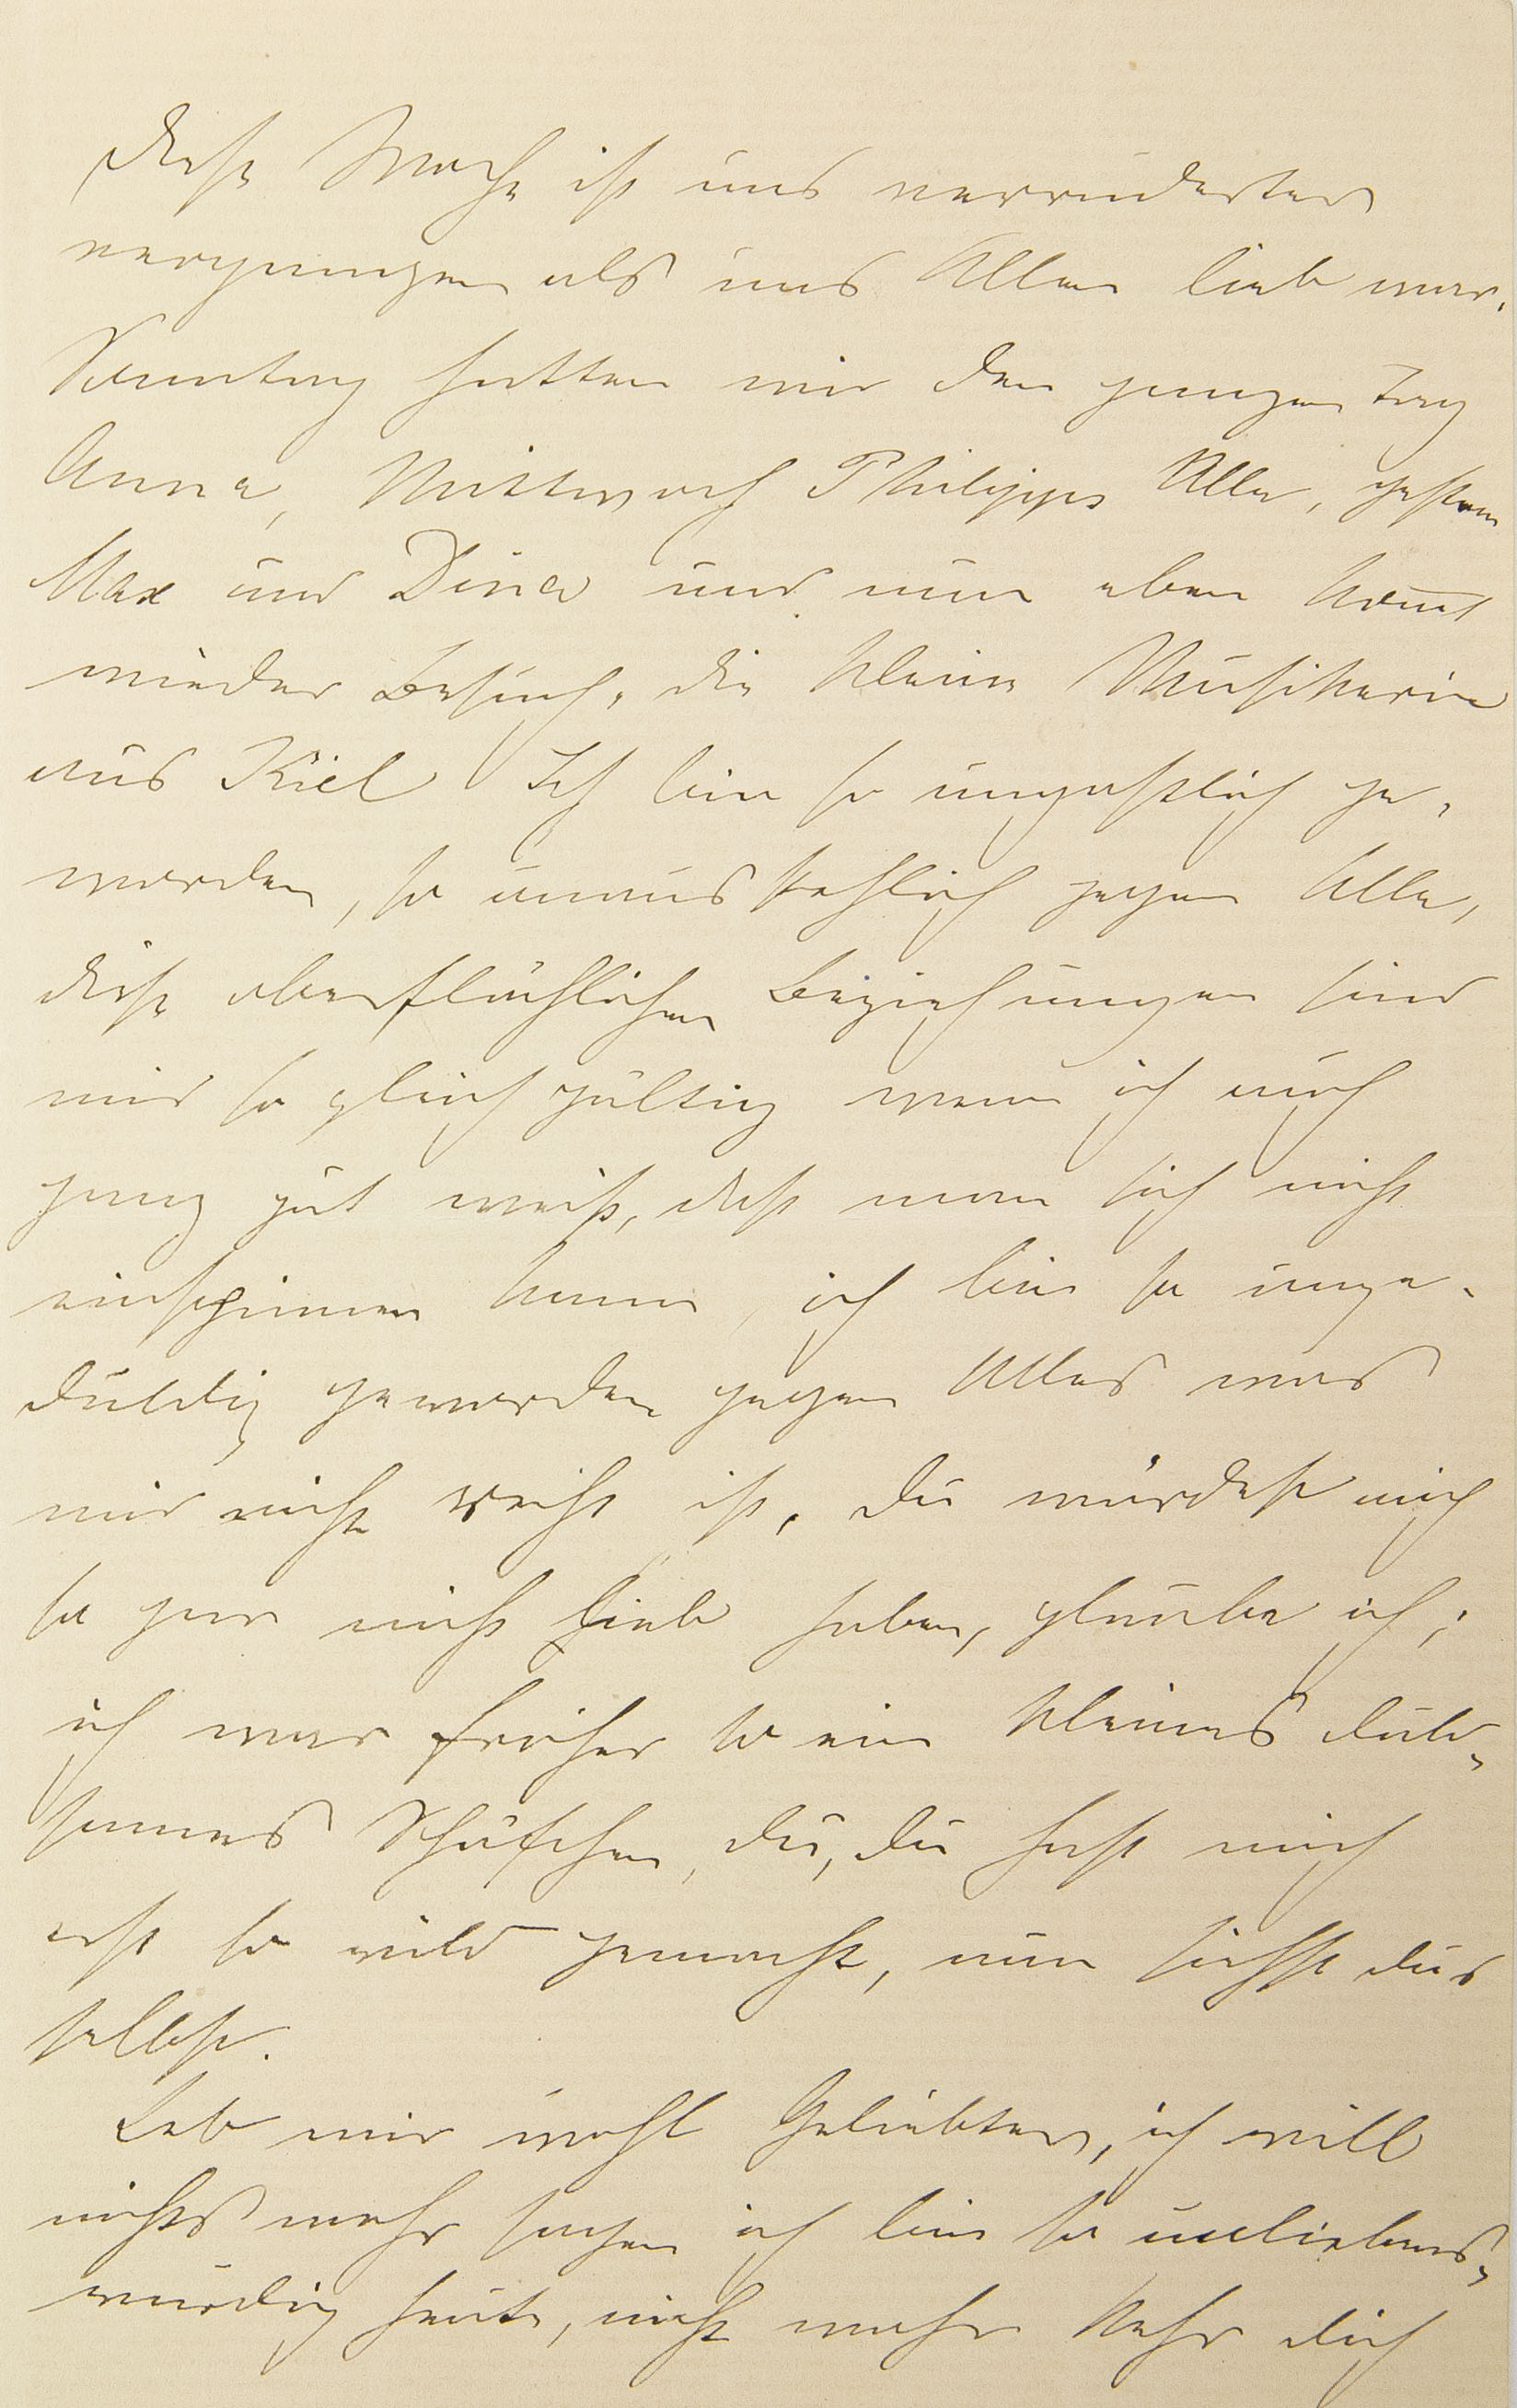 Diese Woche ist uns verändert
vergangen als uns Allen lieb war.
Sonntag hatten wir den ganzen Tag
Anna, Mittwoch Philipps Alle, gestern
Max und Dina und nun eben kom̅t
wieder Besuch, die kleine Musikerin
aus Kiel Ich bin so ungastlich ge-
worden, so unausstehlich gegen Alle,
diese oberflächlichen Beziehungen sind
mir so gleichgültig wenn ich auch
ganz gut weiß, daß man sich nicht
einspinnen kann, ich bin so unge-
duldig geworden gegen Alles was
mir nicht recht ist, du würdest mich
so gar nicht lieb haben, glaube ich;
ich war früher so ein kleines duld-
sames Schäfchen, du, du hast mich
erst so wild gemacht, nun siehst du's
selbst.
Leb mir wohl Geliebter, ich will
nichts mehr sagen ich bin so unliebens-
würdig heute, nicht mehr kehr dich